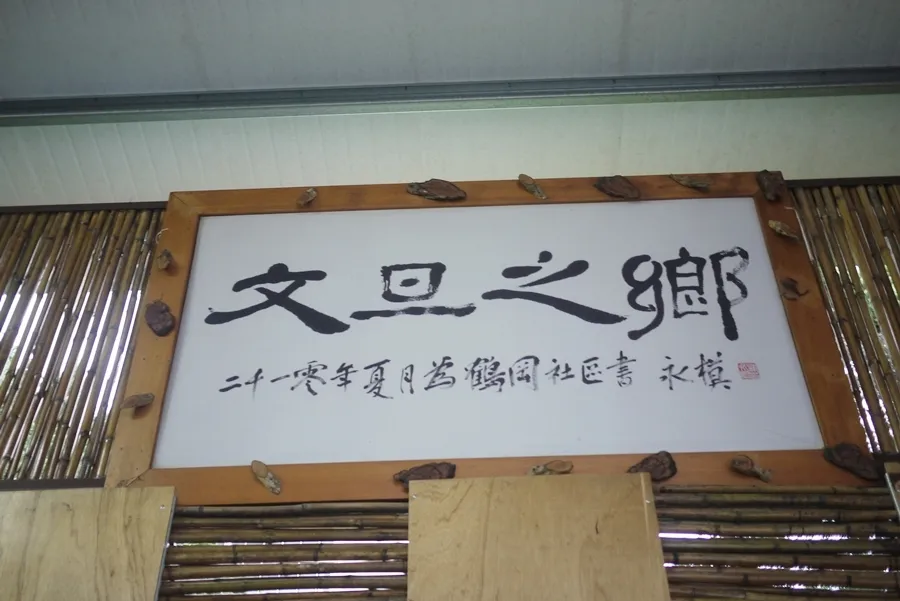 文旦之鄉
二千一零年夏月為鶴岡社區書 永模